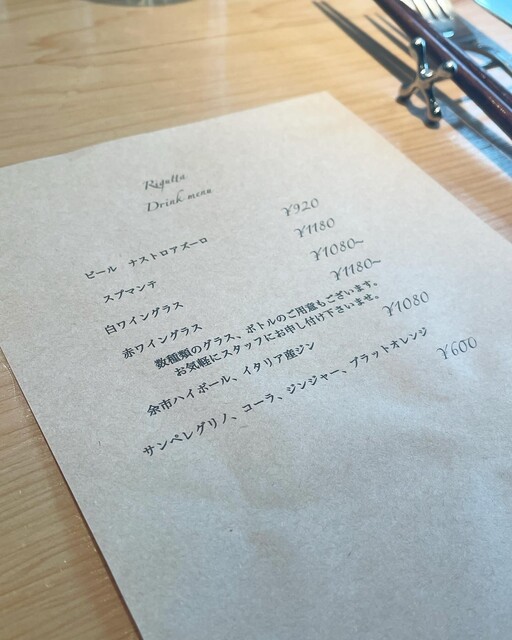 Rigutta
Drink menu
ビール ナストロアズーロ ¥920
スプマンテ ¥1180
白ワイングラス ¥1080~
赤ワイングラス ¥1180~
数種類のグラス、ボトルのご用意もございます。
お気軽にスタッフにお申し付け下さいませ。
余市ハイボール、イタリア産ジン ¥1080
サンペレグリノ、コーラ、ジンジャー、ブラットオレンジ ¥600